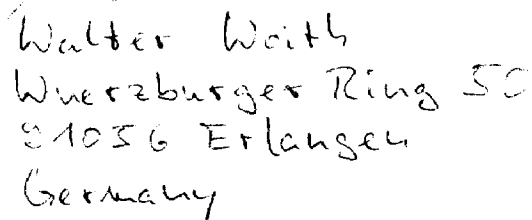 Walter Woith
Wuerzburger Ring 50
91056 Erlangen
Germany